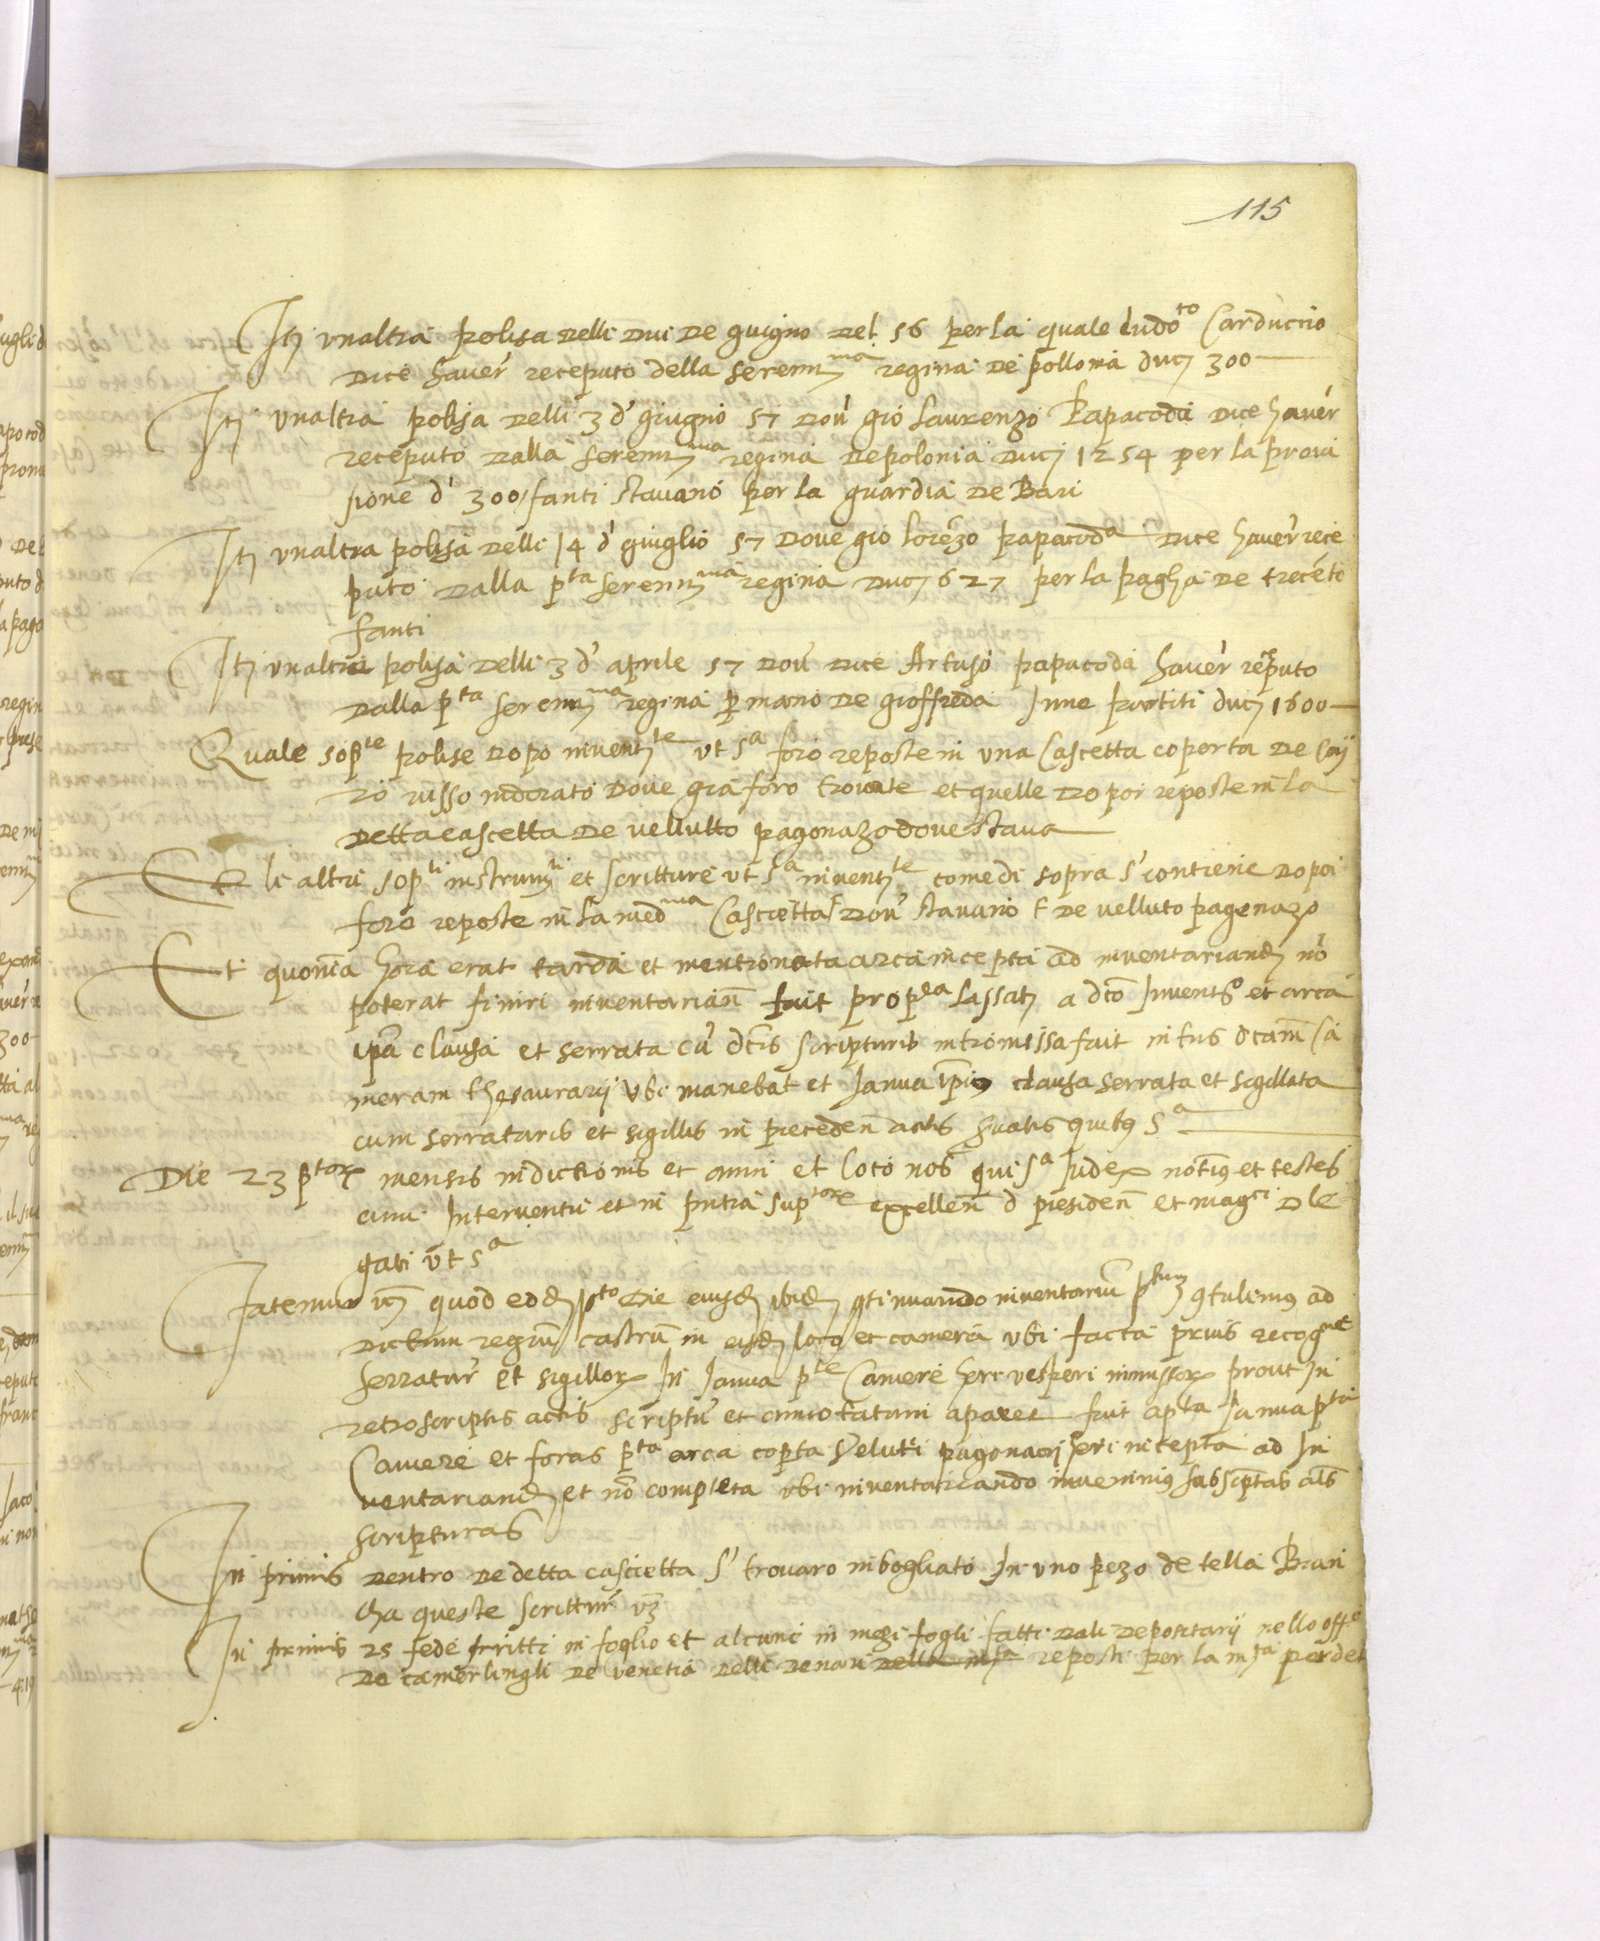 115
Itɜ unaltra polisa delli dui de guigno del 56 per la quale ludo^to Carduccio
dice haver receputo della serenis^ma regina de pollonia ducɜ 300
Itɜ unaltra polisa delli 3 d' giugno 57 dov' gio laurenzo Papacoda dice haver
receputo dalla serenis^ma regina de polonia ducɜ 1254 per la provi
sione d' 300 fanti stavano per la guardia de Bari
Itɜ unaltra polisa delli 14 d' giuglio 57 dove gio lorēzo papacoda dice haver rece
puto dalla p^ta serenis^ma regina ducɜ 627 per la pagha de trecēto
fanti
Itɜ unaltra polisa delli 3 d' aprile 57 dov' dice Artuso papacoda haver receputo
dalla p^ta serenis^ma regina p mano de gioffreda In ne partiti ducɜ 1600
Quale sop^te polise dopo invent^te ut s^a foro reposte in una Cascetta coperta de Coy
ro russo indorato dove gia foro trovate et quelle dopoi reposte in la
detta cascetta de vellutto pagonazo dove stava
Et li altri sop^ti instrum^ti et scritture ut s^a invent^te come di sopra s' contiene dopoi
foro reposte in la med^ma Cascietta dov' stavano de velluto pagonazo
Et quoniā hora erat tarda et mentionata arca incepta ad inventariandɜ nō
poterat finiri inventariari fuit prop^ea lassatɜ a dco Invent^o et arca
ipā clausa et serrata cū dctis scripturis intromissa fuit intus dcam Ca
meram thesaurarij ubi manebat et Janua ipius clausa serrata et sigillata
cum serraturis et sigillis in preceden actis quibus s^a
Die 23 p^torx mensis indictionis et anni et loco nos qui s^a Judex notius et testes
cum Interventu et in pntia sup^torx excellen d presiden et mag^ci dle
gati ut s^a
fatemur quod eodɜ p^to die eiusdɜ ibidɜ continuando inventariū p^tumɜ contulimus ad
dictum regiū castrū in eiusdɜ loco et camera ubi facta prius recogne
serratur et sigillorx In Janua p^te Camere heri vesperi inmissorx prout In
retroscriptis actis scriptū et annotatum aparet fuit apta Janua p^ta
Camere et foras p^ta arca copta veluti pagonacij heri incepta ad In
ventariandɜ et nō completa ubi inventaricando invenimus subscptas als
scripturas
In primis dentro de detta cascietta s' trovaro inbogliato In uno pezo de tella Bian
cha queste scritture vɜ
In primis 25 fede scritti in foglio et alcuni in mezi fogli fatti dali depositarij nello off^o
de camerlinghi de venetia delli denari reposti per la m^ta per det